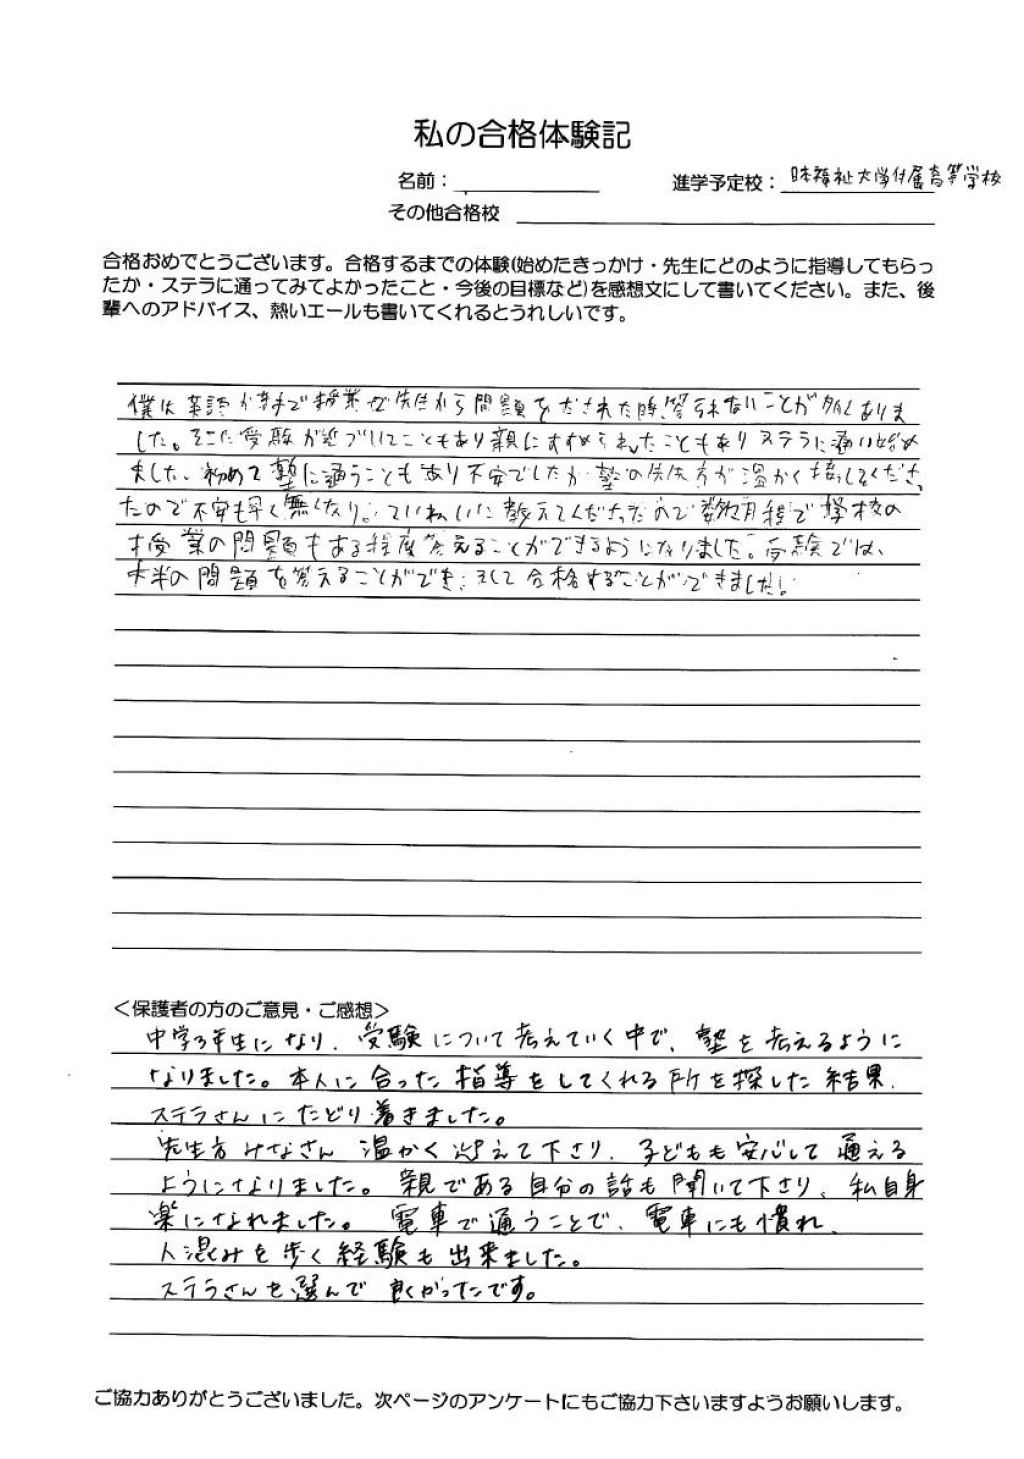 私の合格体験記
名前：
進学予定校：日本福祉大学付属高等学校
その他合格校
合格おめでとうございます。合格するまでの体験(始めたきっかけ・先生にどのように指導してもらっ
たか・ステラに通ってみてよかったこと・今後の目標など)を感想文にして書いてください。また、後
輩へのアドバイス、熱いエールも書いてくれるとうれしいです。
僕は英語が苦手で授業で先生から問題をだされた際、答られないことが多くありま
した。そこに受験が近づいてこともあり親にすすめられたこともありステラに通い始め
ました。初めて塾に通うこともあり不安でしたが塾の先生方が温かく接してくださっ
たので不安も早く無くなり。ていねいに教えてくださったので数ヶ月程で学校の
授業の問題もある程度答えることができるようになりました。受験では、
大半の問題を答えることができ、そして合格することができました!
＜保護者の方のご意見・ご感想＞
中学3年生になり、受験について考えていく中で、塾を考えるように
なりました。本人に合った指導をしてくれる所を探した結果、
ステラさんにたどり着きました。
先生方みなさん温かく迎えて下さり、子どもも安心して通える
ようになりました。親である自分の話も聞いて下さり、私自身
楽になれました。電車で通うことで、電車にも慣れ、
人混みを歩く経験も出来ました。
ステラさんを選んで良かったです。
ご協力ありがとうございました。次ページのアンケートにもご協力下さいますようお願いします。